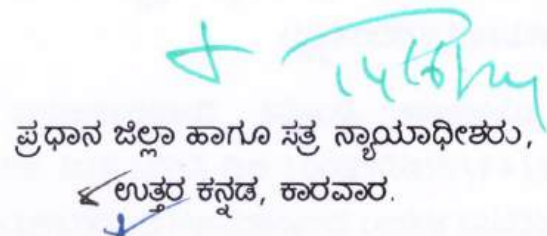 ಪ್ರಧಾನ ಜಿಲ್ಲಾ ಹಾಗೂ ಸತ್ರ ನ್ಯಾಯಾಧೀಶರು,
ಉತ್ತರ ಕನ್ನಡ, ಕಾರವಾರ.